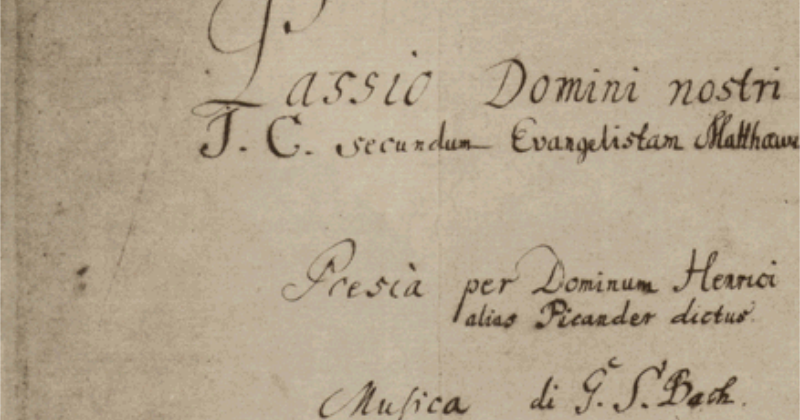 Passio Domini nostri
J. C. secundum Evangelistam Matthaeu
Poesia per Dominum Henrici
alias Picander dictus
Musica di G. S. Bach.